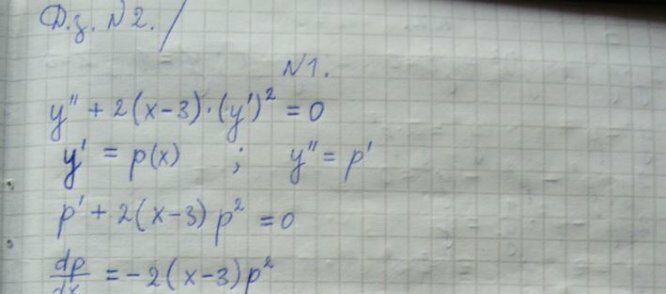 Д.з. N2./
N1.
y'' + 2(x-3)·(y')² = 0
y' = p(x) ; y'' = p'
p' + 2(x-3) p² = 0
dp/dx = -2(x-3)p²